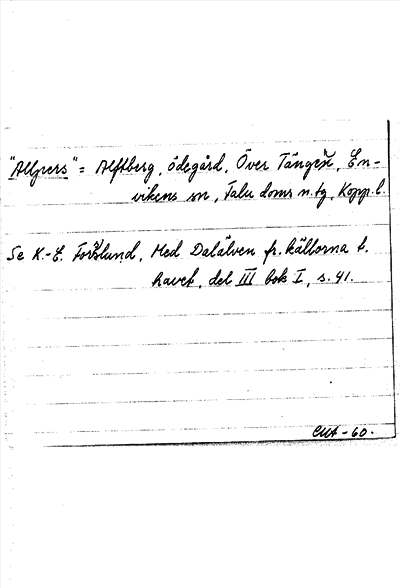 "Allpers" = Alftberg, ödegård, Över Tängen, En-
vikens sn, Falu doms n. tg, Kopp. l.
Se K.-E. Forslund, Med Dalälven fr. källorna t.
havet, del III bok I, s. 41.
CMA - 60.